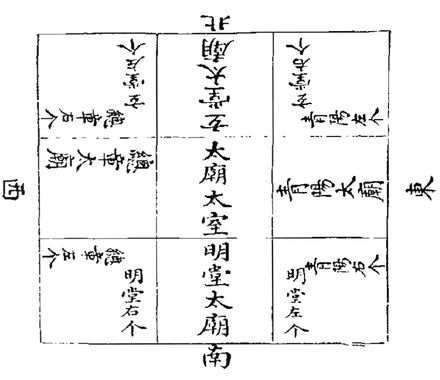 北
玄堂左个
總章右个
玄堂太廟
玄堂右个
青陽左个
西
總章大廟
太廟太室
青陽太廟
東
總章左个
明堂右个
明堂太廟
青陽右个
明堂左个
南